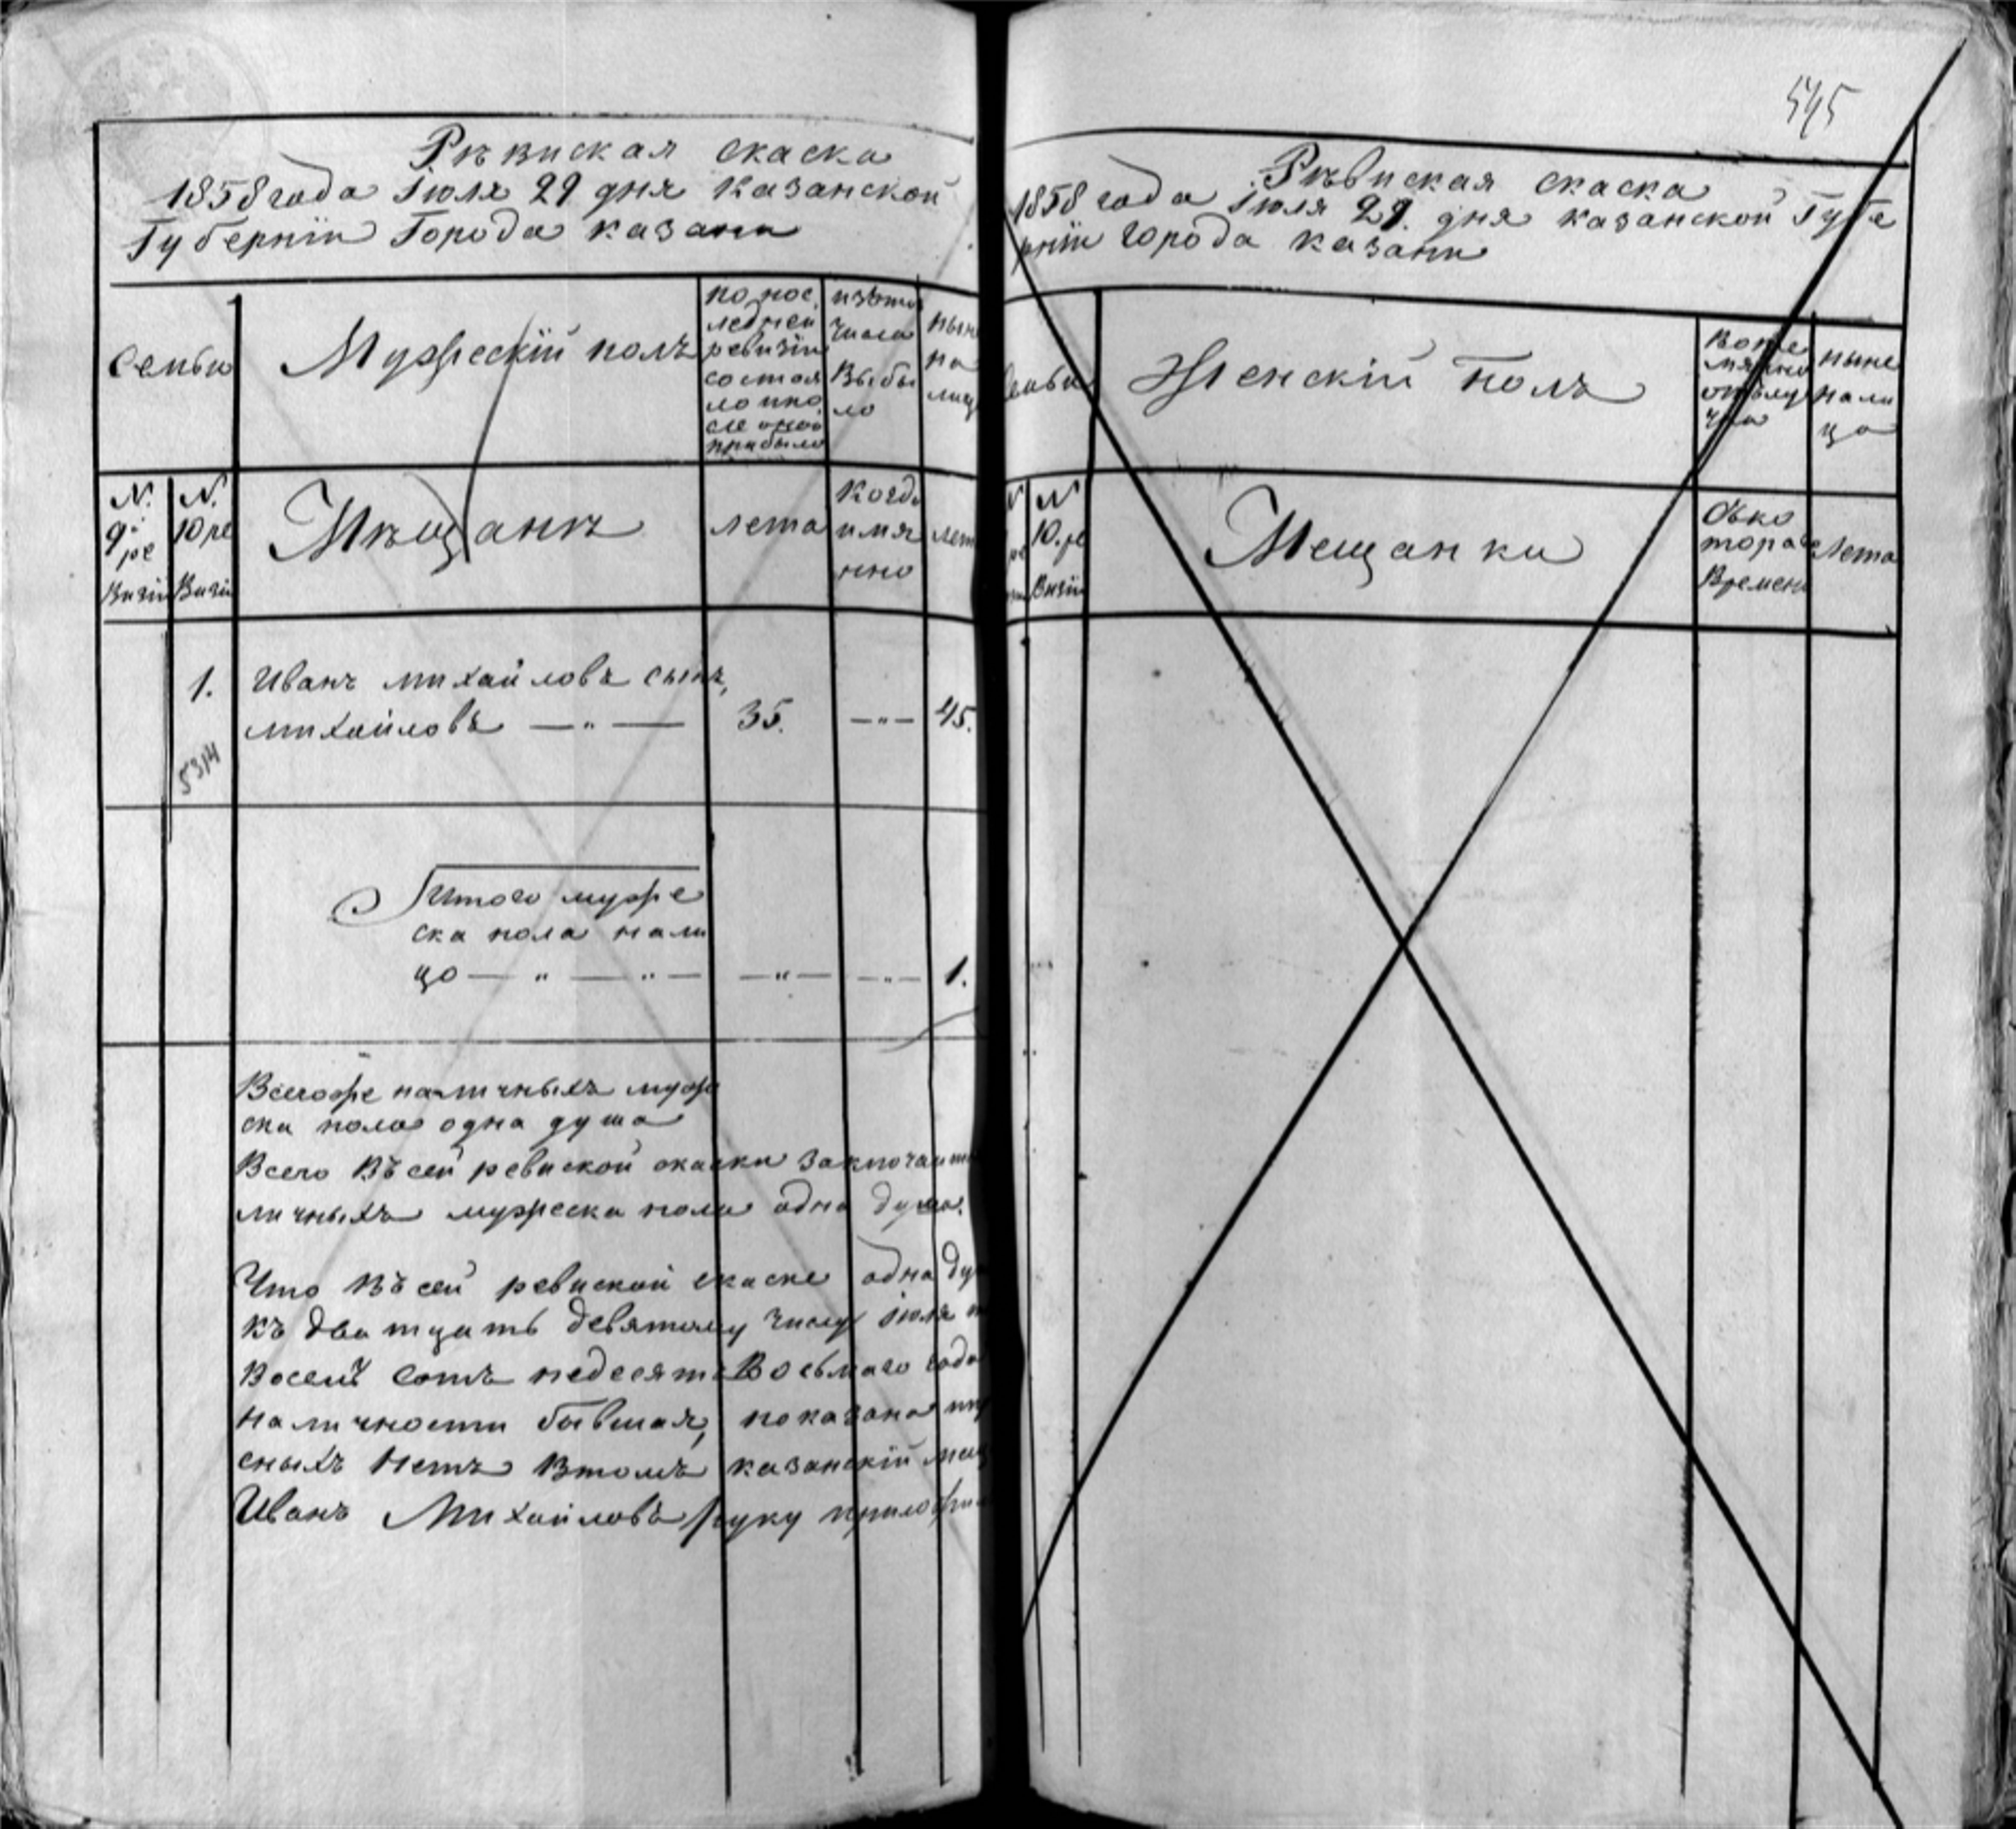 Рѣвиская скаска
1858 года Iюля 29 дня Казанской
Губернiи Города казани
Семьи
Мужескiй полъ
по пос
ледней
ревизiи
состоя
ло и по
сле оной
прибыло
изъ того
числа
Выбы
ло
ныне
на
лиц
N.
9й ре
Визiи
N.
10 ре
Визiи
Мѣщанѣ
лета
Когда
имя
нно
лет
1.
Иванъ михайловъ сынъ,
михайловъ — " —
35.
— " —
45.
5314
Итого муже
ска пола нали
цо — " — " —
— " —
— " —
1.
Всегоже наличныхъ муже
ска пола одна душа
Всего Въ сей ревиской скаски заключаит
личныхъ мужеска пола одна душа.
Что Въ сей ревиской скаске одна ду
къ дватцать девятому числу iюля
Восемъ сотъ педесятъ Восьмаго года
наличности бывшая, показана
сныхъ нетъ Втомъ казанскiй мещ
Иванъ Михайловъ руку приложи
545
Рѣвиская скаска
1858 года Iюля 29. дня казанской Губе
рнiи города казани
Семьи
Женскiй полъ
Во вре
мянно
отлу
чки
ныне
нали
цо
N
N
10. ре
Визiи
Мещанки
Съко
тораго
Времени
Лета